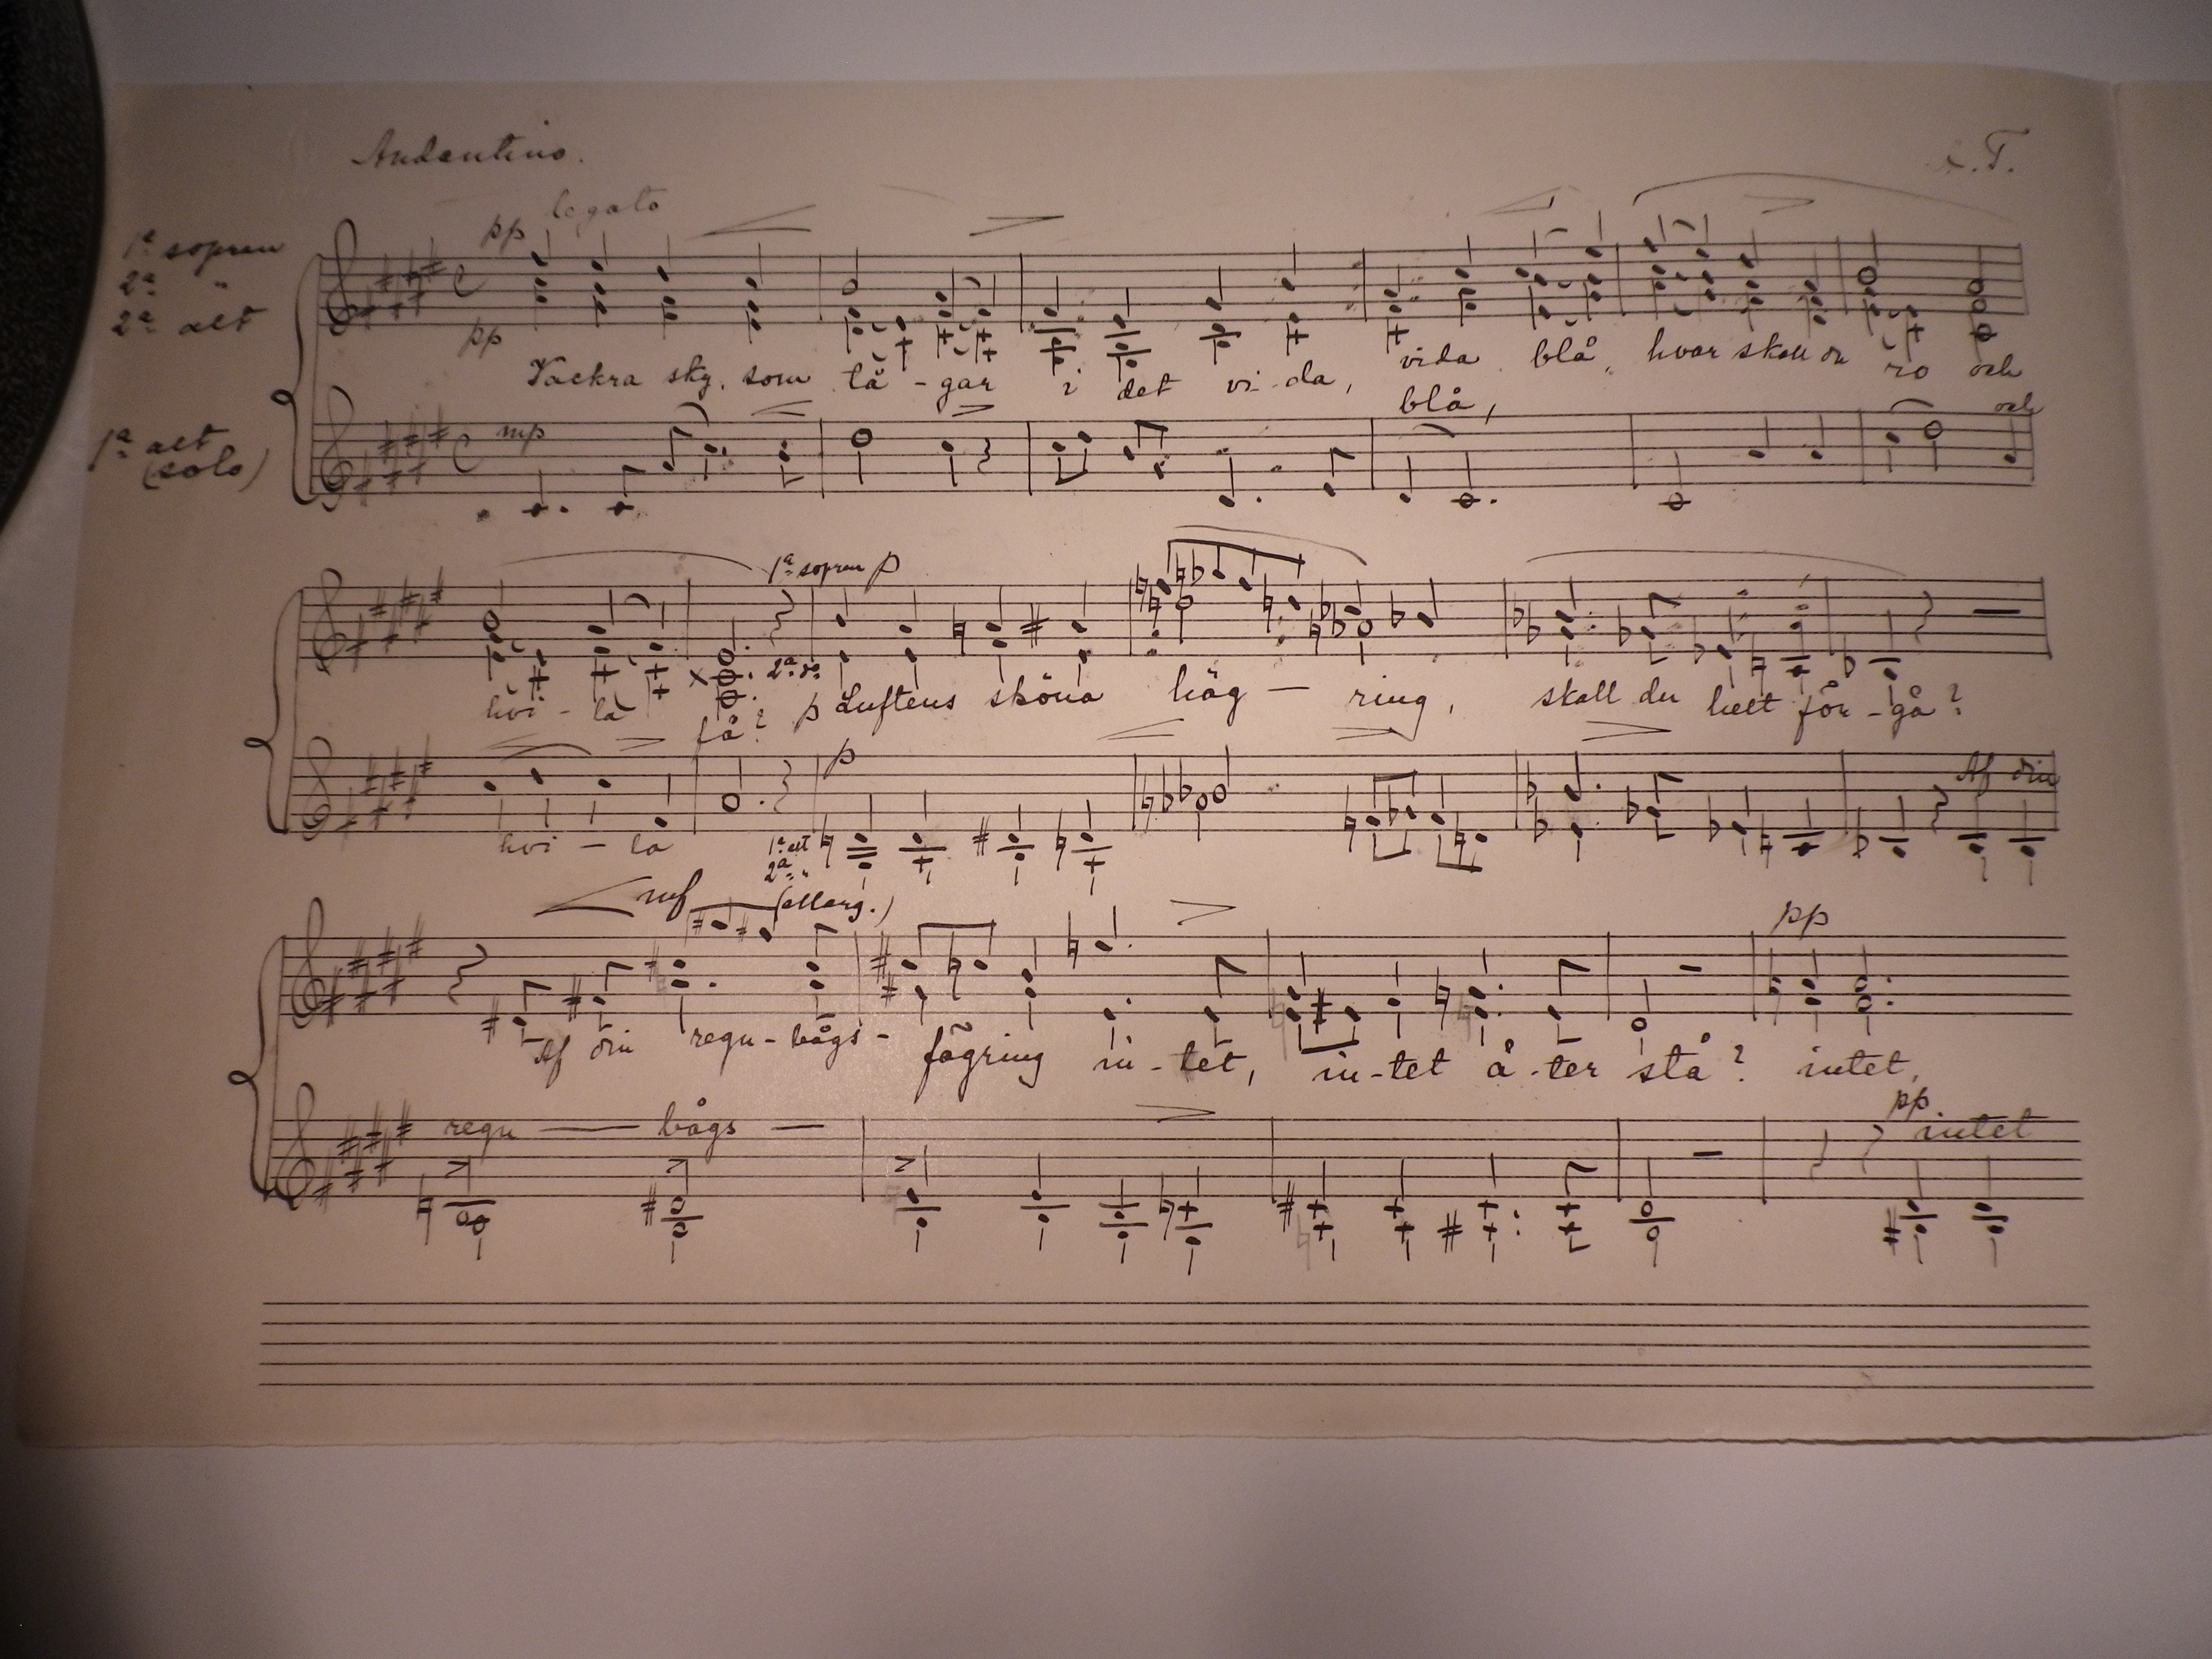 Andantino.
T.
legato
pp
1ª sopran
2ª "
2ª alt
pp
Vackra sky, som tå - gar i det vi - da, vida blå, hvar skall du ro och
blå,
och
1ª alt
(solo)
mp
1ª sopran p
2ª do
hvi - la få? p Luftens sköna häg — ring, skall du helt för - gå?
p
Af din
hvi - la
1ª alt
2ª "
mf (allarg.)
pp
Af din regn - bågs - fägring in - tet, in - tet å - ter stå? intet,
pp
regn — bågs —
intet